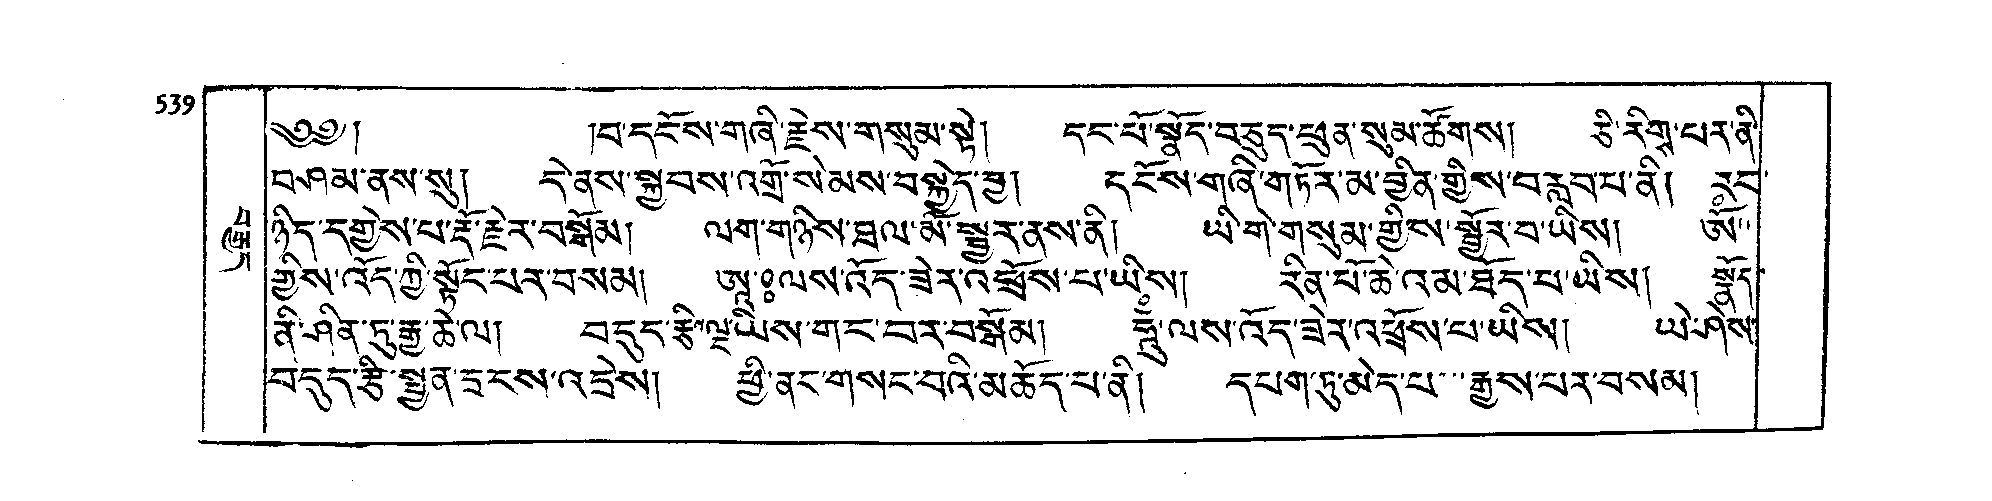 539
༄༅། །བ་དངོས་གཞི་རྗེས་གསུམ་སྟེ། དང་པོ་སྣོད་བཅུད་ཕུན་སུམ་ཚོགས། ཙི་རིགྷྲ་པར་ནི
བཤམ་ནས་སུ། དེ་ནས་སྐྱབས་འགྲོ་སེམས་བསྐྱེད་བྱ། དངོས་གཞི་གཏོར་མ་བྱིན་གྱིས་བརླབ་པ་ནི། རང་
ཉིད་དགྱེས་པ་རྡོ་རྗེར་བསྒོམ། ལག་གཉིས་ཐལ་མོ་སྦྱར་ནས་ནི། ཡི་གེ་གསུམ་གྱིས་སྦྱོར་བ་ཡིས། ཨོཾ་
གྱིས་འོད་ཀྱི་སྟོང་པར་བསམ། ཨཱཿལས་འོད་ཟེར་འཕྲོས་པ་ཡིས། རིན་པོ་ཆེ་འམ་ཐོད་པ་ཡིས། སྣོད་
ནི་ཤིན་ཏུ་རྒྱ་ཆེ་ལ། བདུད་རྩི་ལྔ་ཡིས་གང་བར་བསྒོམ། ཧཱུྃ་ལས་འོད་ཟེར་འཕྲོས་པ་ཡིས། ཡེ་ཤེས་
བདུད་རྩི་སྤྱན་དྲངས་འདྲེས། ཕྱི་ནང་གསང་བའི་མཆོད་པ་ནི། དཔག་ཏུ་མེད་པ་རྒྱས་པར་བསམ།